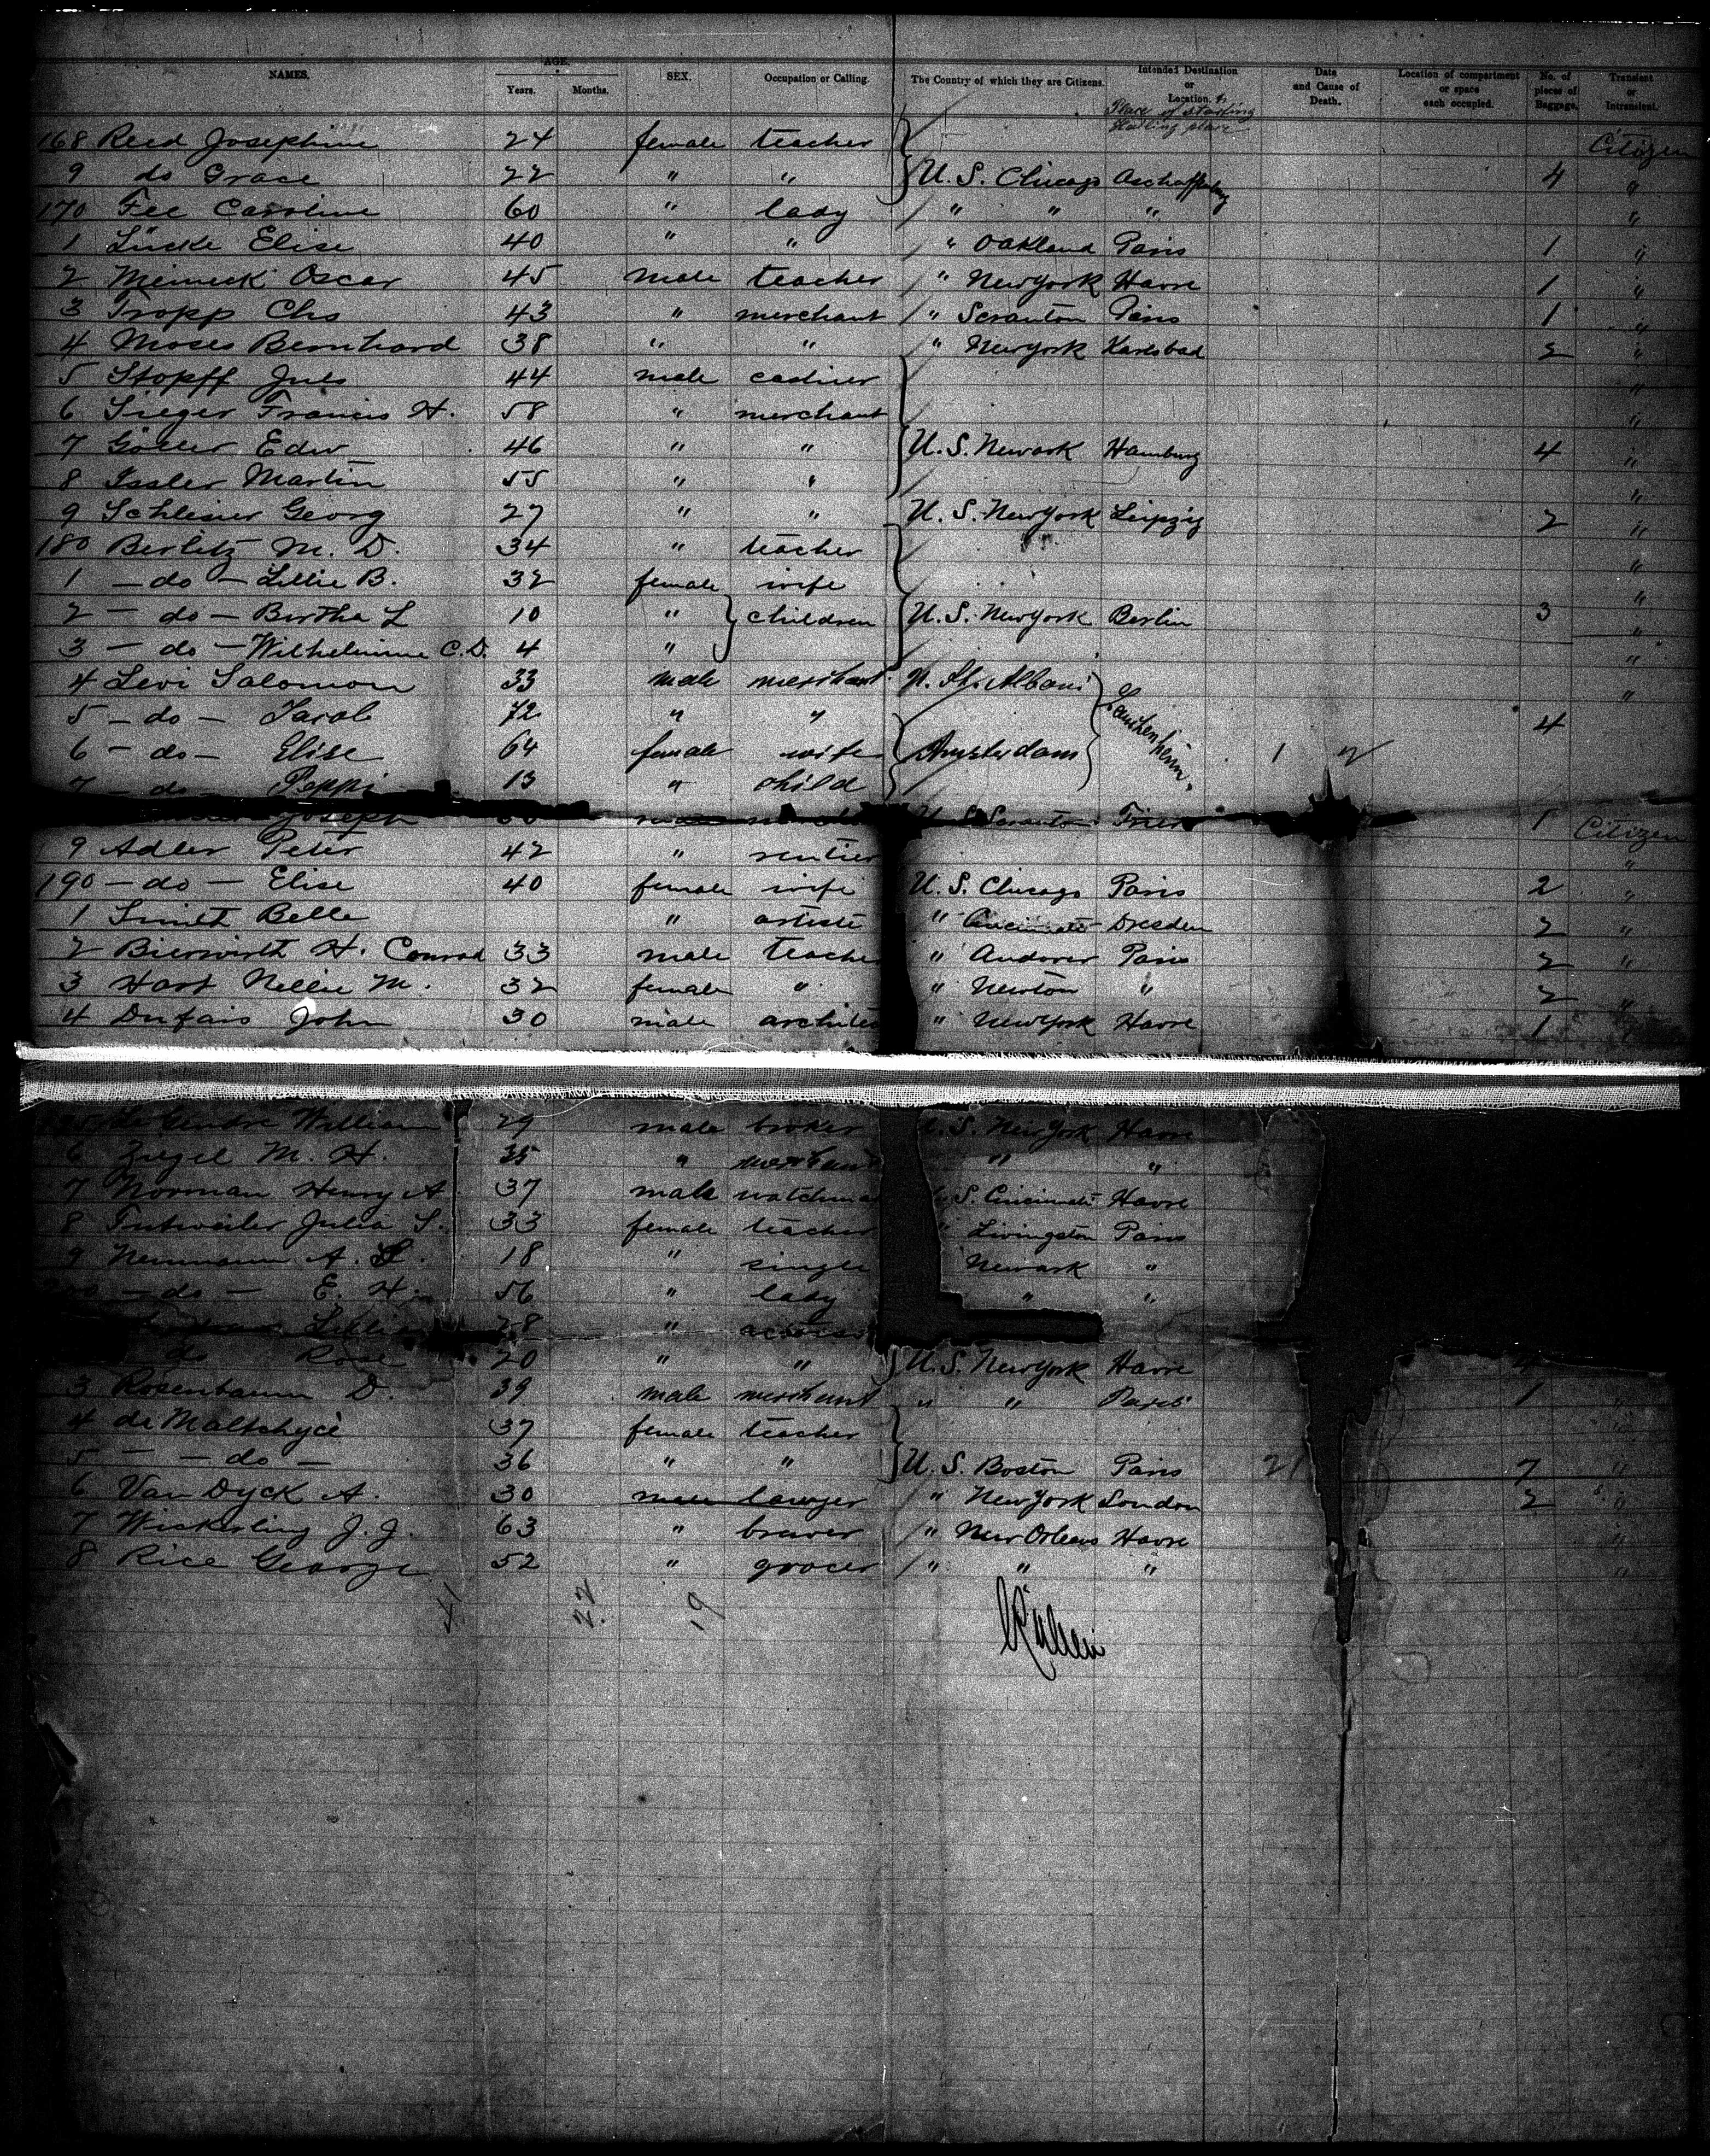 NAMES. AGE. Years. Months. SEX. Occupation or Calling. The Country of which they are Citizens. Intended Destination or Location. Date and Cause of Death. Location of compartment or space each occupied. No. of pieces of Baggage. Transient or Intransient.
Place of starting
168 Reed Josephine 24 female teacher Citizen
9 do Grace 22 " " U. S. Chicago 4 "
170 Fee Caroline 60 " lady " " " "
1 Lücke Elise 40 " " " Oakland Paris 1 "
2 Meineck Oscar 45 male teacher " New York Havre 1 "
3 Tropp Chs 43 " merchant " Scranton Paris 1 "
4 Moses Bernhard 38 " " " New York Karlsbad 2 "
5 Stopff Juls 44 male cashier "
6 Sieger Francis H. 58 " merchant "
7 Göller Edw 46 " " U. S. Newark Hamburg 4 "
8 Issler Martin 55 " " "
9 Georg 27 " " U. S. New York Leipzig 2 "
180 Berlitz M. D. 34 " teacher "
1 - do - Lillie B. 32 female wife "
2 - do - Bertha L 10 " children U. S. New York Berlin 3 "
3 - do - Wilhelmine C. D. 4 " "
4 Levi Salomon 33 male merchant "
5 - do - Jacob 72 " " 4
6 - do - Elise 64 female wife Amsterdam 1 2
7 - do - Peppi 13 " child
Joseph U. S. Scranton Trier 1 Citizen
9 Adler Peter 42 " rentier "
190 - do - Elise 40 female wife U. S. Chicago Paris 2 "
1 Smith Belle " artiste " Cincinnati Dresden 2 "
2 Bierwirth H. Conrad 33 male teacher " Andover Paris 2 "
3 Hart Nellie M. 32 female " " Newton " 2 "
4 Dufais John 30 male architec " New York Havre 1 "
William 29 male broker U. S. New York Havre
6 Ziegel M. H. 35 " merchant " "
7 Norman Henry A. 37 male watchma S. Cincinnati Havre
8 Tutweiler Julia S. 33 female teacher " Livingston Paris
9 Neumann A. L. 18 " single Newark "
- do - E. H. 56 " lady " "
Lillie 28 " actress
do Rose 20 " " U. S. New York Havre 4
3 Rosenbaum D. 39 male merchant " " Paris 1 "
4 de Maltchycè 37 female teacher "
5 - - do - 36 " " U. S. Boston Paris 21 7 "
6 Van Dyck A. 30 male lawyer " New York London 2 "
7 Wickerling J. J. 63 " brewer " New Orleans Havre "
8 Rice George 52 " grocer " " " "
41 22 19